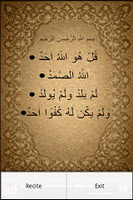 بسم الله الرحمن الرحيم
قُلْ هُوَ اللَّهُ أَحَدٌ
اللَّهُ الصَّمَدُ
لَمْ يَلِدْ وَلَمْ يُولَدْ
وَلَمْ يَكُن لَّهُ كُفُوًا أَحَدٌ
Recite Exit